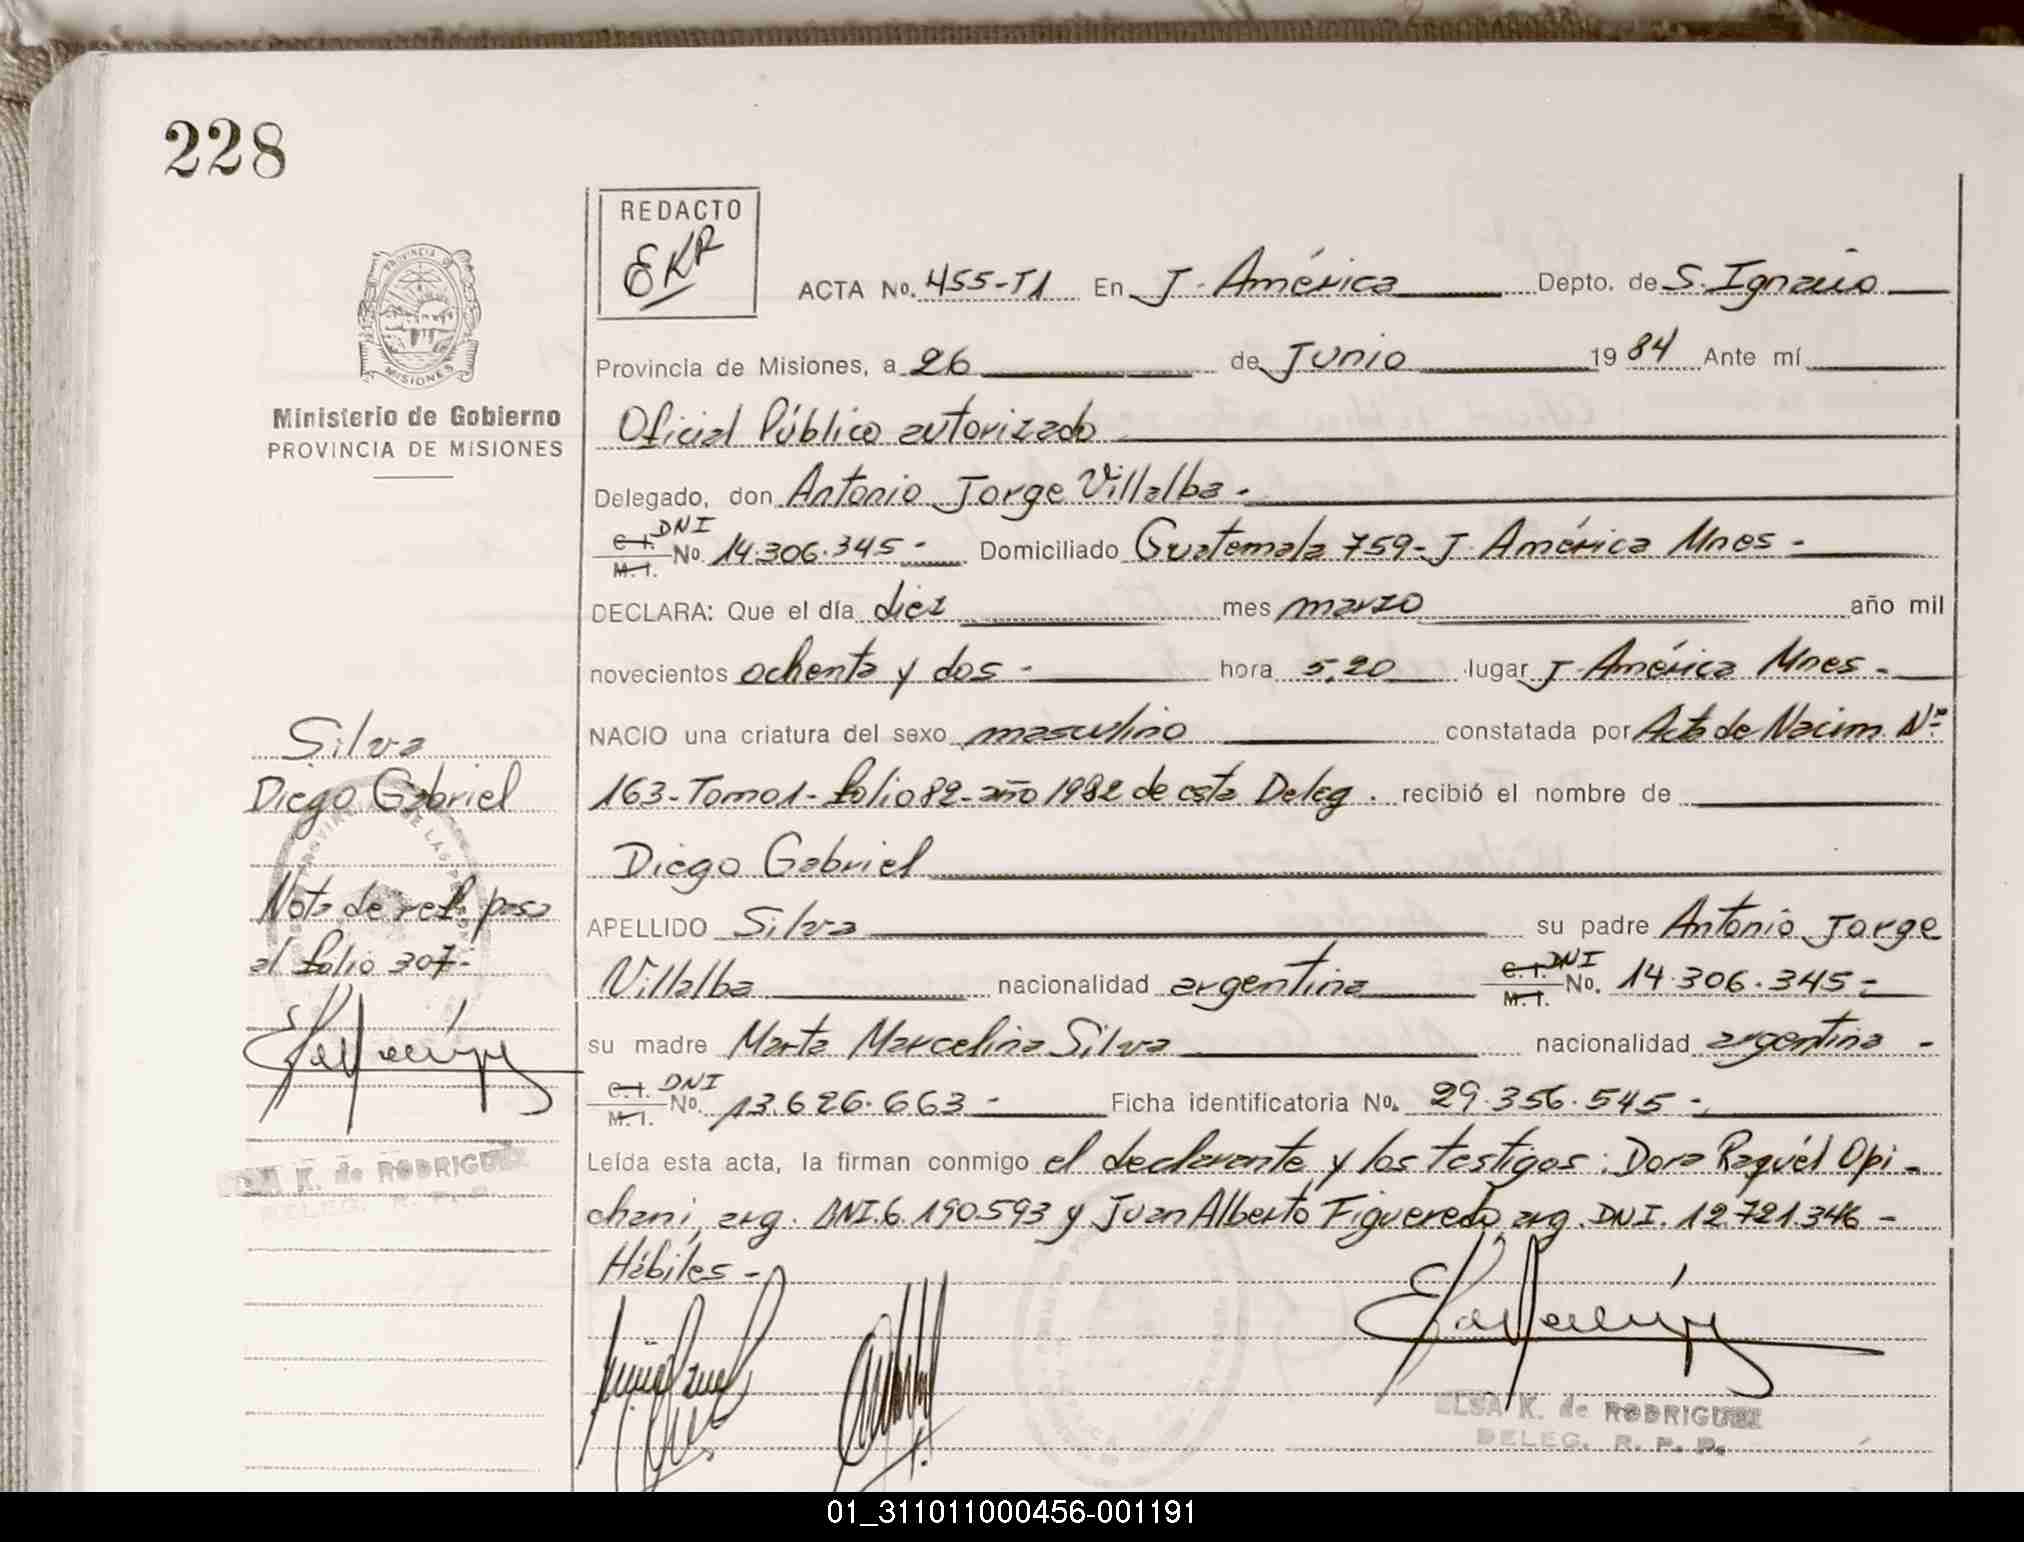 228
REDACTO
EKR
PROVINCIA D
MISIONES
Ministerio de Gobierno
PROVINCIA DE MISIONES
ACTA No. 455-T1 En J. América Depto. de S. Ignacio
Provincia de Misiones, a 26 de Junio 1984 Ante mí
Oficial Público autorizado
Delegado, don Antonio Jorge Villalba -
C. I. DNI
M. I. No. 14.306.345 - Domiciliado Guatemala 759 - J. América Mnes -
DECLARA: Que el día diez mes marzo año mil
novecientos ochenta y dos - hora 5,20 lugar J. América Mnes -
NACIO una criatura del sexo masculino constatada por Acta de Nacim. Nº
163 - Tomo 1 - folio 82 - año 1982 de esta Deleg. recibió el nombre de
Diego Gabriel
APELLIDO Silva su padre Antonio Jorge
Villalba nacionalidad argentina C. I. DNI M. I. No. 14.306.345 -
su madre Marta Marcelina Silva nacionalidad argentina -
C. I. DNI
M. I. No. 13.626.663 - Ficha identificatoria No. 29.356.545 -
Leída esta acta, la firman conmigo el declarante y los testigos: Dora Raquél Opi-
chani, arg. DNI. 6.190.593 y Juan Alberto Figueredo, arg. DNI. 12.721.346 -
Hábiles -
ELSA K. de RODRIGUEZ
DELEG. R. P. P.
Silva
Diego Gabriel
Nota de ref. pasa
al folio 307 -
ELSA K. de RODRIGUEZ
DELEG. R. P. P.
01_311011000456-001191